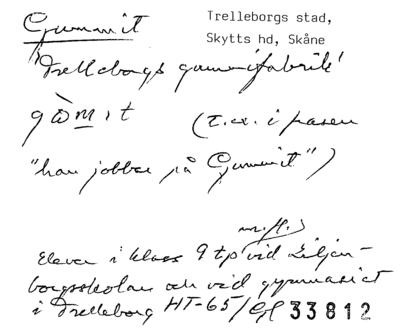 Gummit
Trelleborgs stad,
Skytts hd, Skåne
'Trelleborgs gummifabrik'
(t.ex. i frasen
"han jobbar på Gummit")
m.fl.)
Elever i klass 9 tp vid Liljeborgsskolan och vid gymnasiet
i Trelleborg HT-65/ 33812